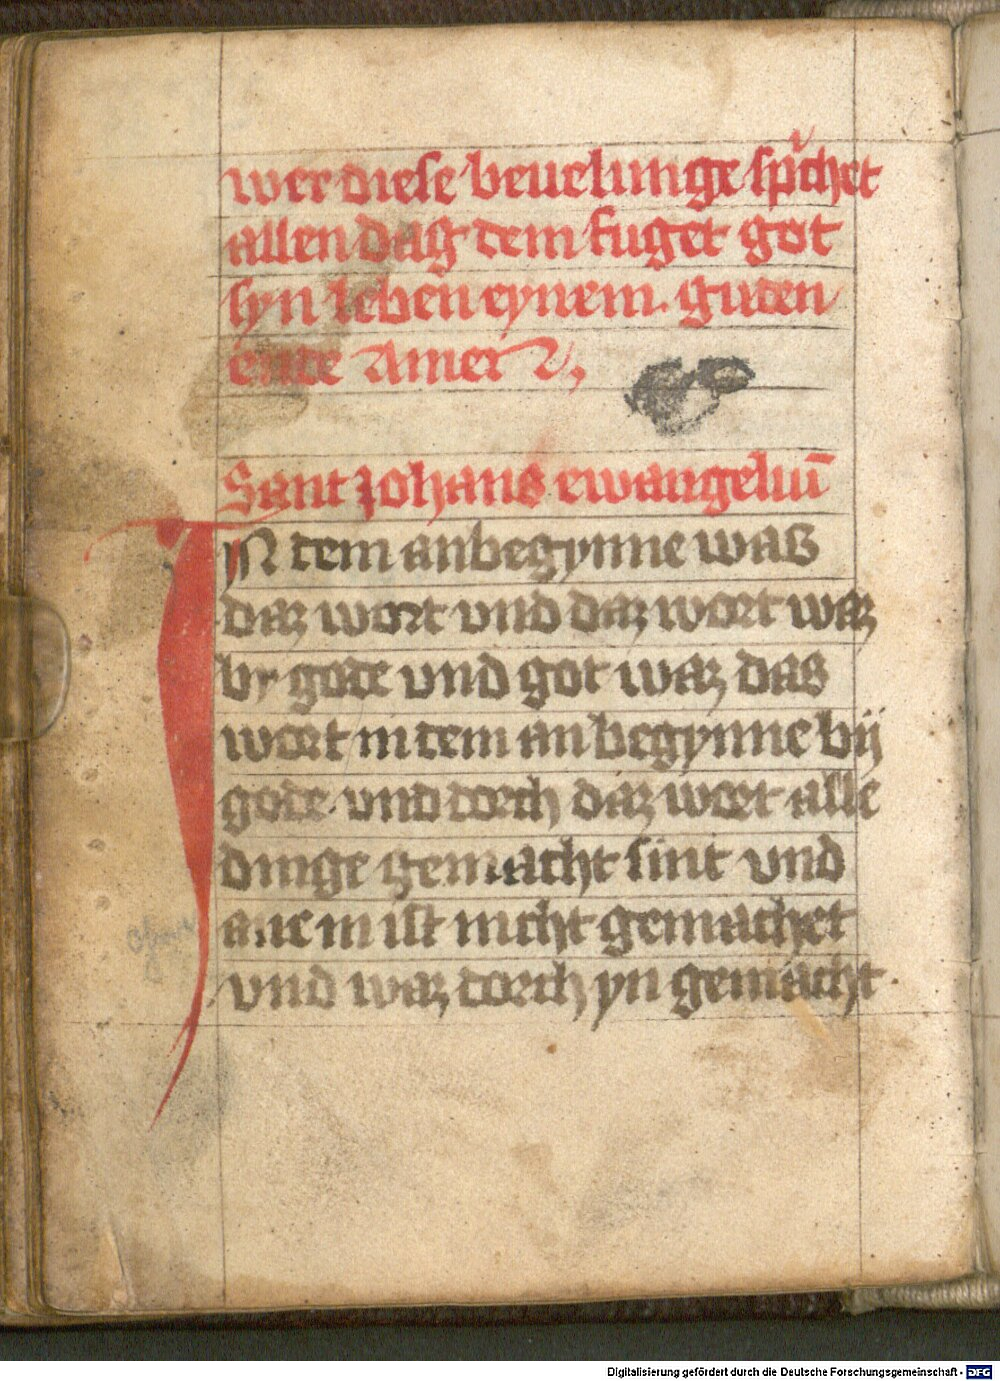 wer diese beuelunge sp̄chet
allen dag dem fuget got
syn leben eynem guden
ente Amen
Sant Johans ewangeliū
IN dem anbegynne was
daz wort vnd daz wort waz
by gode vnd got waz das
wort in dem anbegynne bij
gode vnd dorch daz wort alle
dinge gemacht sint vnd
ane in ist nicht gemachet
vnd waz dorch yn gemacht
Digitalisierung gefördert durch die Deutsche Forschungsgemeinschaft - DFG